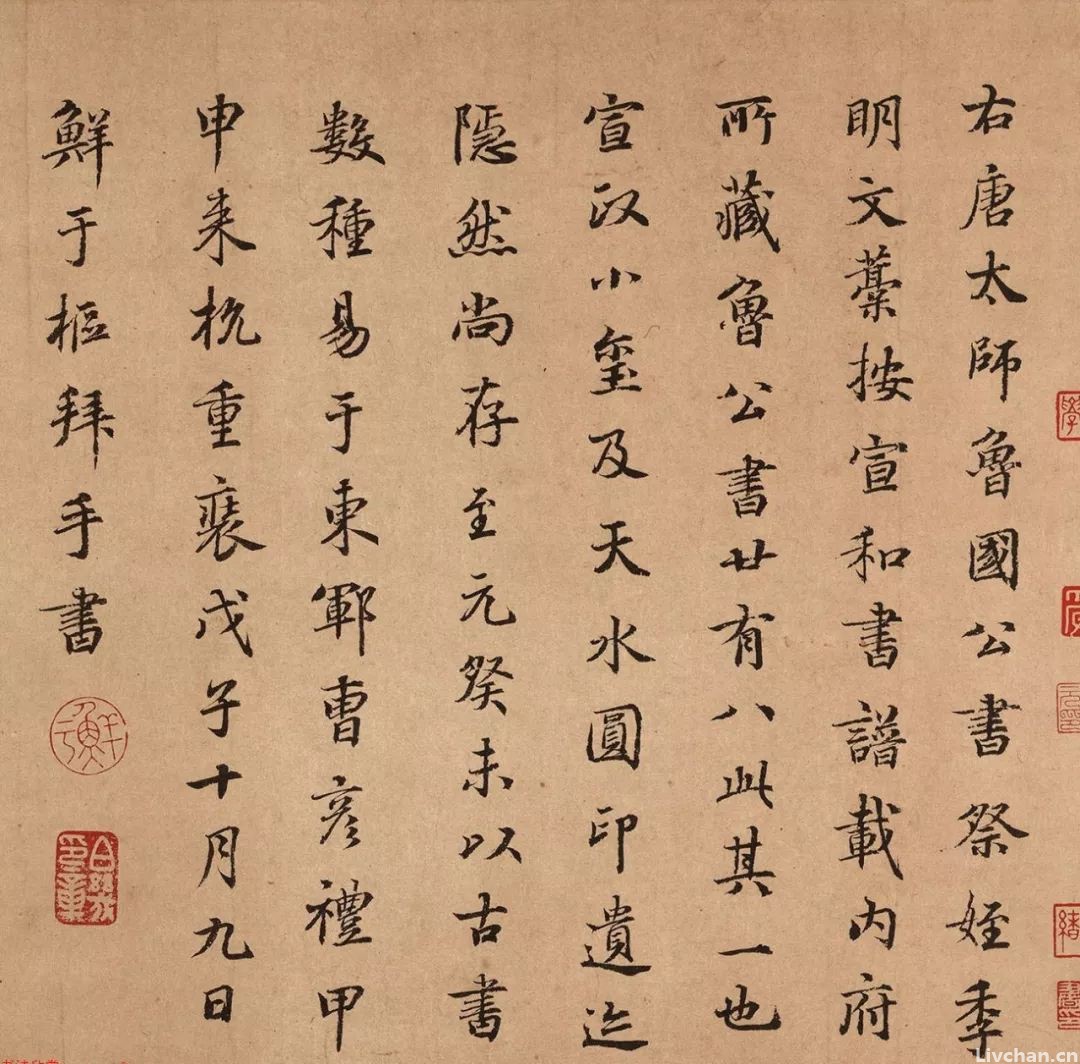 右唐太師魯國公書祭姪季
明文藁按宣和書譜載内府
所藏魯公書廿有八此其一也
宣政小璽及天水圓印遺迹
隱然尚存至元癸未以古書
數種易于東鄆曹彦禮甲
申来杭重裝戊子十月九日
鮮于樞拜手書
Livchan.cn